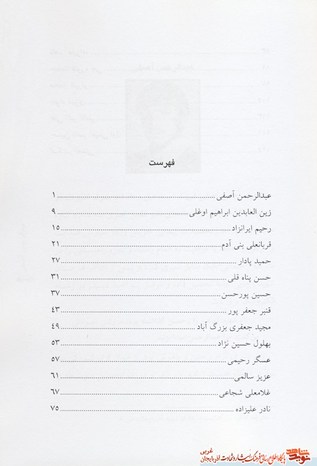 فهرست
عبدالرحمن آصفی ۱
زین العابدین ابراهیم اوغلی ۹
رحیم ایرانزاد ۱۵
قربانعلی بنی آدم ۲۱
حمید پادار ۲۷
حسن پناه قلی ۳۱
حسین پورحسن ۳۷
قنبر جعفر پور ۴۳
مجید جعفری بزرگ آباد ۴۹
بهلول حسین نژاد ۵۳
عسگر رحیمی ۵۷
عزیز سالمی ۶۱
غلامعلی شجاعی ۶۷
نادر علیزاده ۷۵